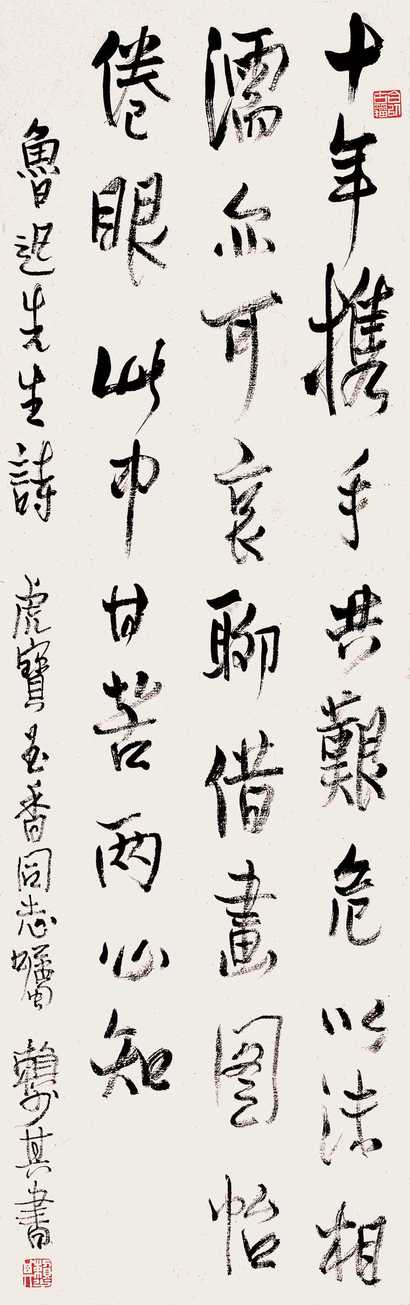 十年携手共艱危以沫相
濡亦可哀聊借畫圖怡
倦眼此中甘苦两心知
魯迅先生詩 虎寶玉香同志囑 賴少其書